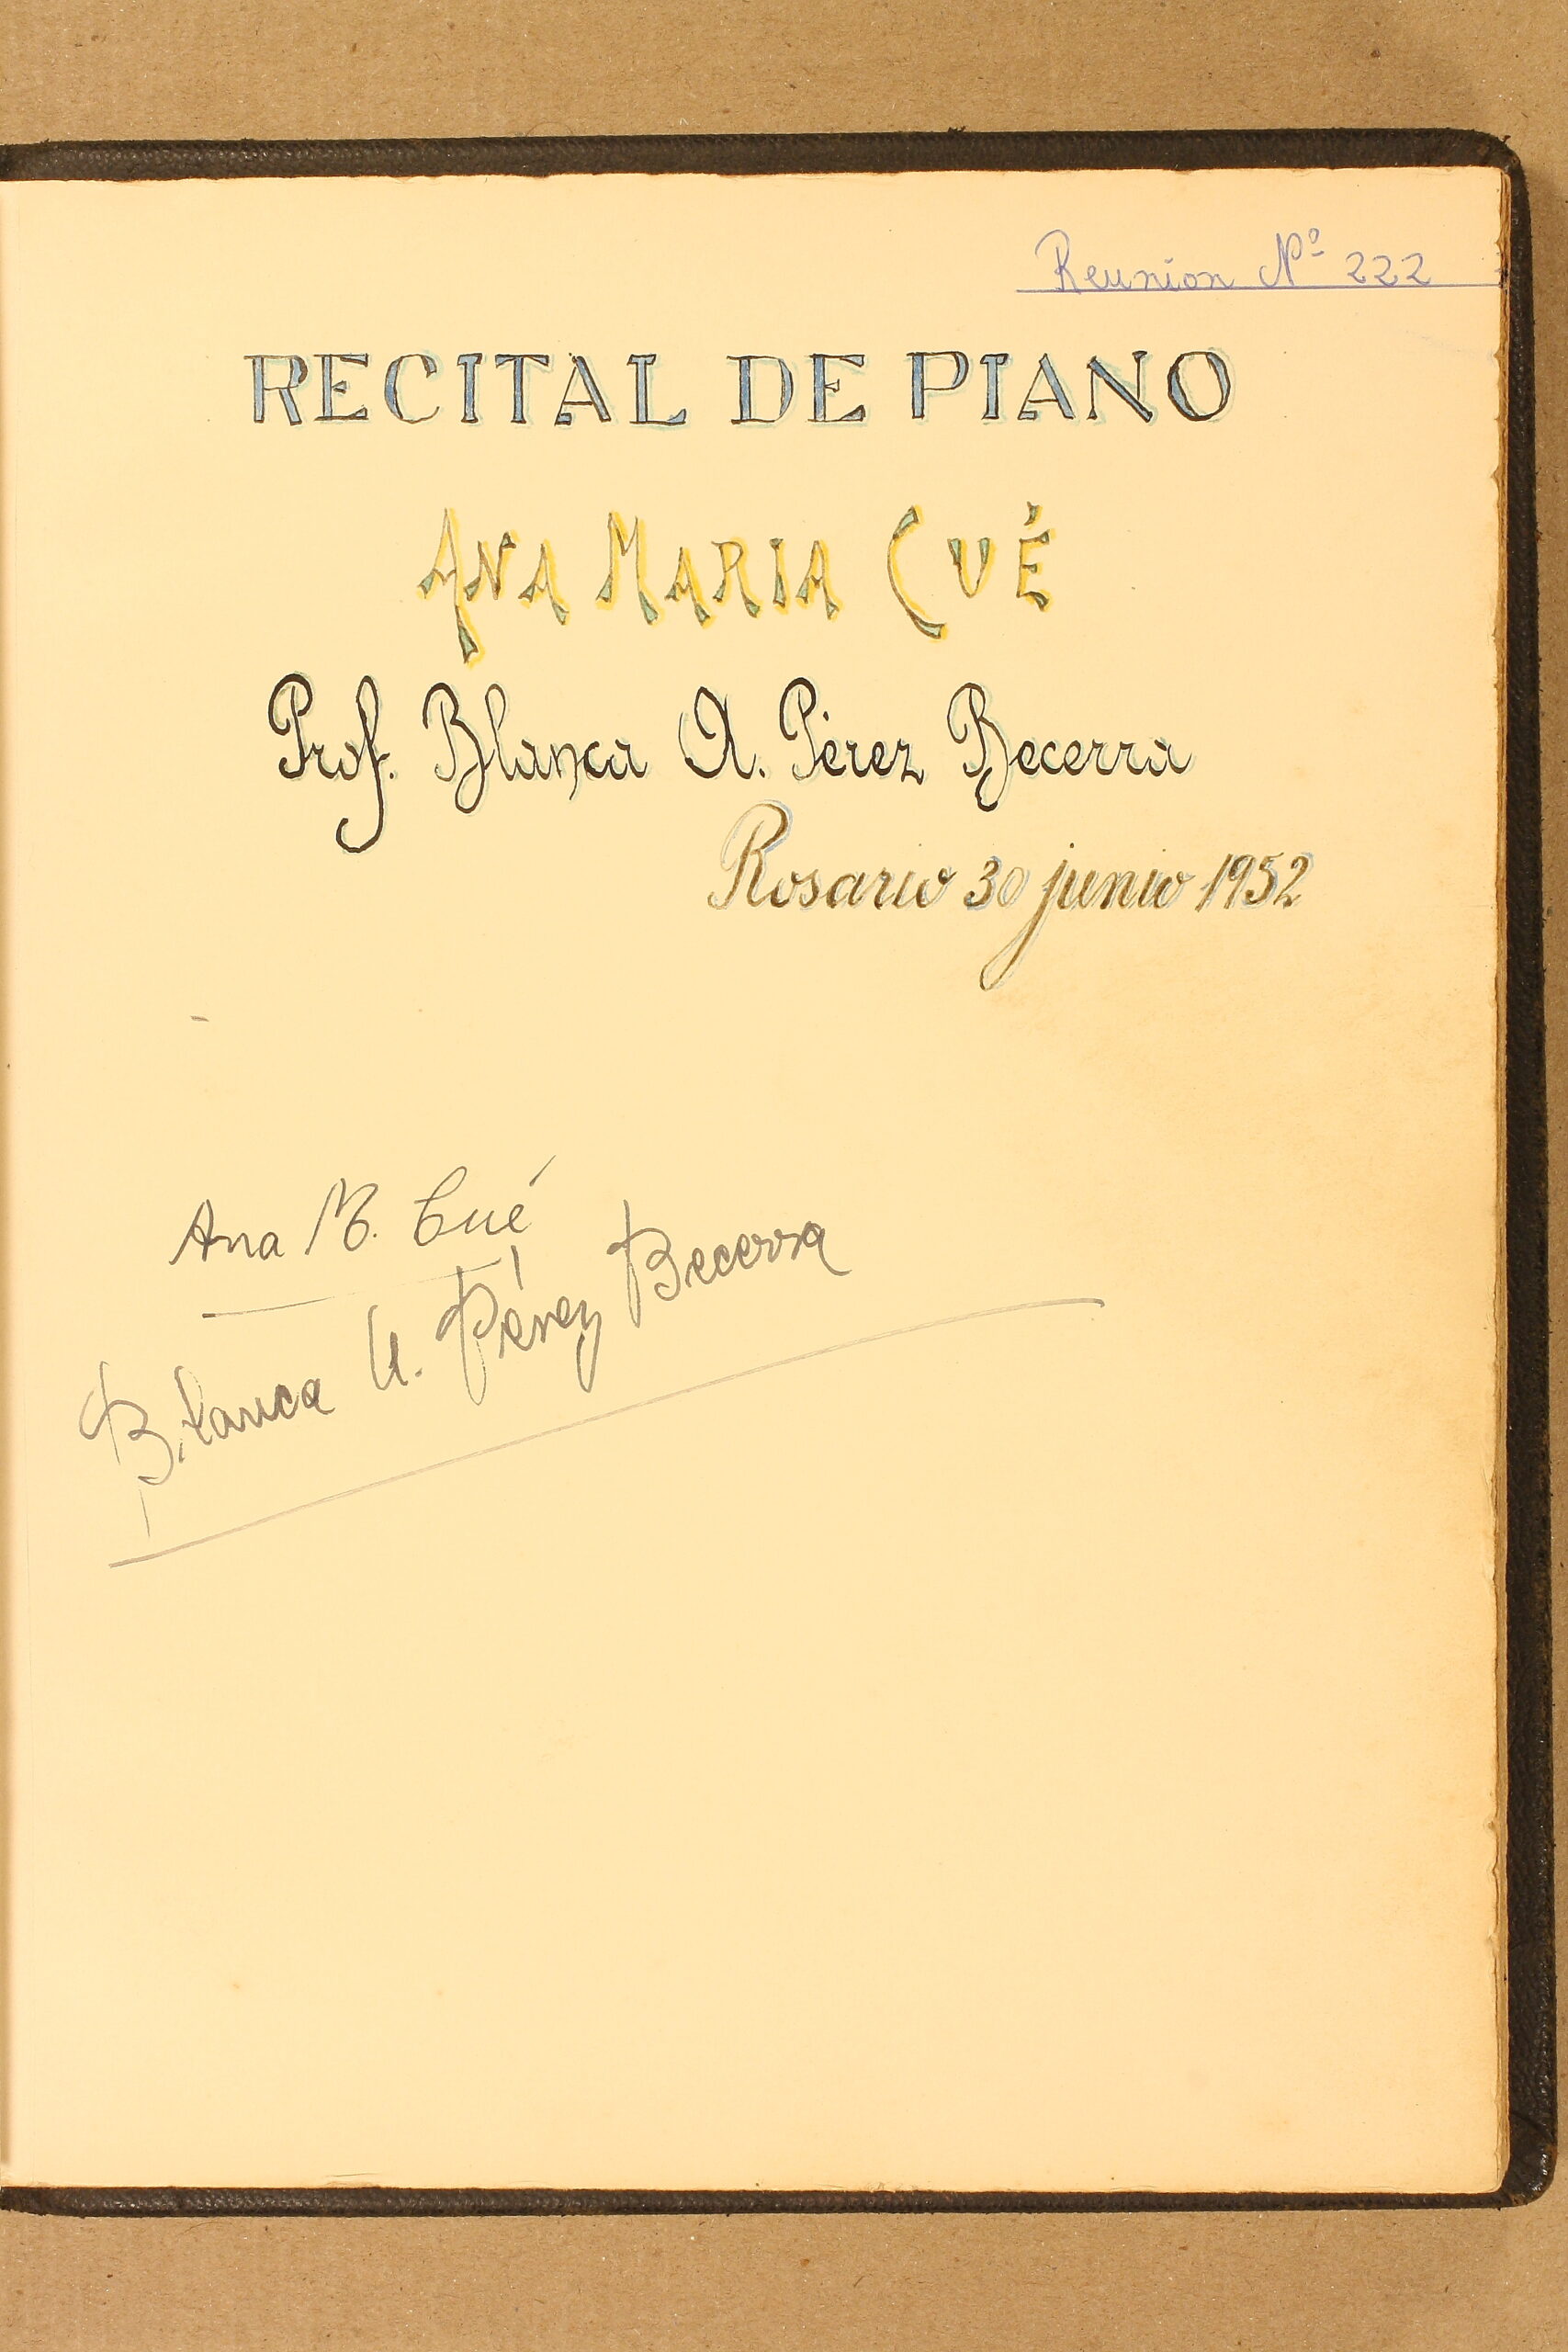 Reunion Nº 222
RECITAL DE PIANO
ANA MARIA CUÉ
Prof. Blanca A. Pérez Becerra
Rosario 30 junio 1952
Ana M. Cué
Blanca A. Pérez Becerra